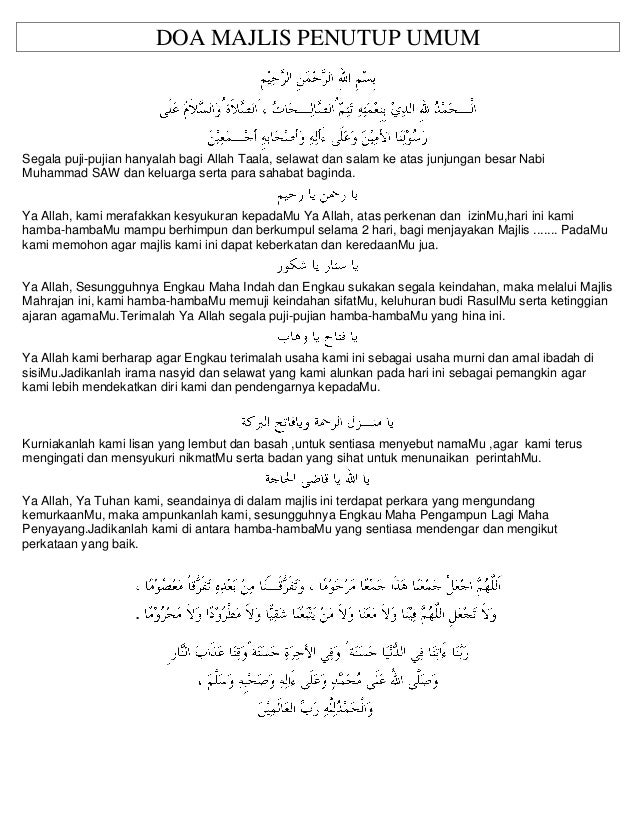 DOA MAJLIS PENUTUP UMUM
بِسْمِ اللهِ الرَّحْمَنِ الرَّحِيْمِ
الْـحَمْدُ للهِ الذِي بِنِعْمَتِهِ تَتِمُّ الصَّالِـحَاتُ ، الصَّلَاةُ وَالسَّلَامُ عَلَى
رَسُوْلِنَا الأَمِيْنَ وَعَلَى ءَالِهِ وَأَصْحَابِهِ أَجْـمَعِيْنَ
Segala puji-pujian hanyalah bagi Allah Taala, selawat dan salam ke atas junjungan besar Nabi
Muhammad SAW dan keluarga serta para sahabat baginda.
يا رحمن يا رحيم
Ya Allah, kami merafakkan kesyukuran kepadaMu Ya Allah, atas perkenan dan izinMu,hari ini kami
hamba-hambaMu mampu berhimpun dan berkumpul selama 2 hari, bagi menjayakan Majlis ....... PadaMu
kami memohon agar majlis kami ini dapat keberkatan dan keredaanMu jua.
يا ستار يا شكور
Ya Allah, Sesungguhnya Engkau Maha Indah dan Engkau sukakan segala keindahan, maka melalui Majlis
Mahrajan ini, kami hamba-hambaMu memuji keindahan sifatMu, keluhuran budi RasulMu serta ketinggian
ajaran agamaMu.Terimalah Ya Allah segala puji-pujian hamba-hambaMu yang hina ini.
يا فتاح يا وهاب
Ya Allah kami berharap agar Engkau terimalah usaha kami ini sebagai usaha murni dan amal ibadah di
sisiMu.Jadikanlah irama nasyid dan selawat yang kami alunkan pada hari ini sebagai pemangkin agar
kami lebih mendekatkan diri kami dan pendengarnya kepadaMu.
يا منـزل الرحمة ويافاتح البركة
Kurniakanlah kami lisan yang lembut dan basah ,untuk sentiasa menyebut namaMu ,agar kami terus
mengingati dan mensyukuri nikmatMu serta badan yang sihat untuk menunaikan perintahMu.
يا الله يا قاضى الحاجة
Ya Allah, Ya Tuhan kami, seandainya di dalam majlis ini terdapat perkara yang mengundang
kemurkaanMu, maka ampunkanlah kami, sesungguhnya Engkau Maha Pengampun Lagi Maha
Penyayang.Jadikanlah kami di antara hamba-hambaMu yang sentiasa mendengar dan mengikut
perkataan yang baik.
اَللَّهُمَّ اجْعَلْ جَمْعَنَا هَذَا جَمْعًا مَرْحُوْمًا ، وَتَفَرُّقَـنَا مِنْ بَعْدِهِ تَفَرُّقًا مَعْصُوْمًا ،
وَلاَ تَجْعَلِ اللَّهُمَّ فِيْنَا وَلاَ مَعَنَا وَلاَ مَنْ يَتْبَعُنَا شَقِيًّا وَلاَ مَطْرُوْدًا وَلاَ مَحْرُوْمًا .
رَبَّنَا ءَاتِنَا فِي الدُّنْيَا حَسَنَةً وَفِي الأَخِرَةِ حَسَنَةً وَقِنَا عَذَابَ النَّارِ
وَصَلَّى اللهُ عَلَى مُحَمَّدٍ وَعَلَى ءَالِهِ وَصَحْبِهِ وَسَلَّمَ ،
وَالْحَمْدُلِلَّهِ رَبِّ العَالَمِيْنَ